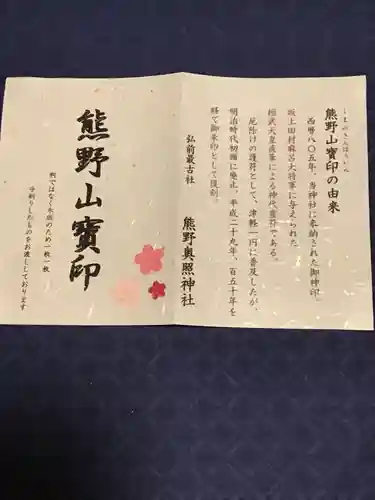 くまのさんほういん
熊野山寳印の由来
西暦八〇五年、当神社に奉納された御神印。
坂上田村麻呂大将軍に与えられた
桓武天皇直筆による神代霊符である。
厄除けの護符として、津軽一円に普及したが、
明治時代初期に廃止、平成二十九年、百五十年を
経て御朱印として復刻。
弘前最古社
熊野奥照神社
熊野山寳印
判ではなく木版のため一枚一枚
手刷りしたものをお渡ししております